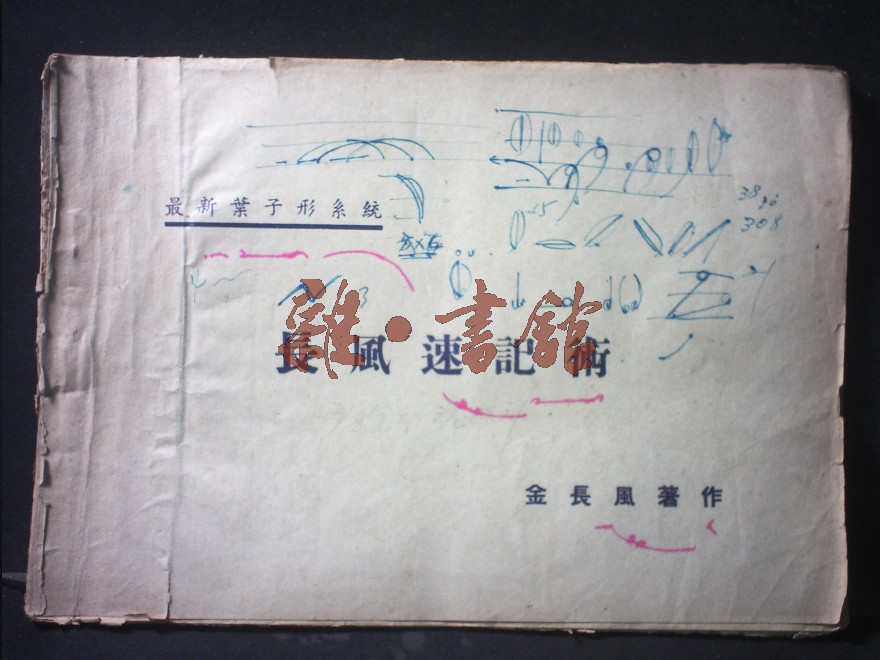 最新葉子形系統
38
308
長風速記術
雜·書館
金長風著作